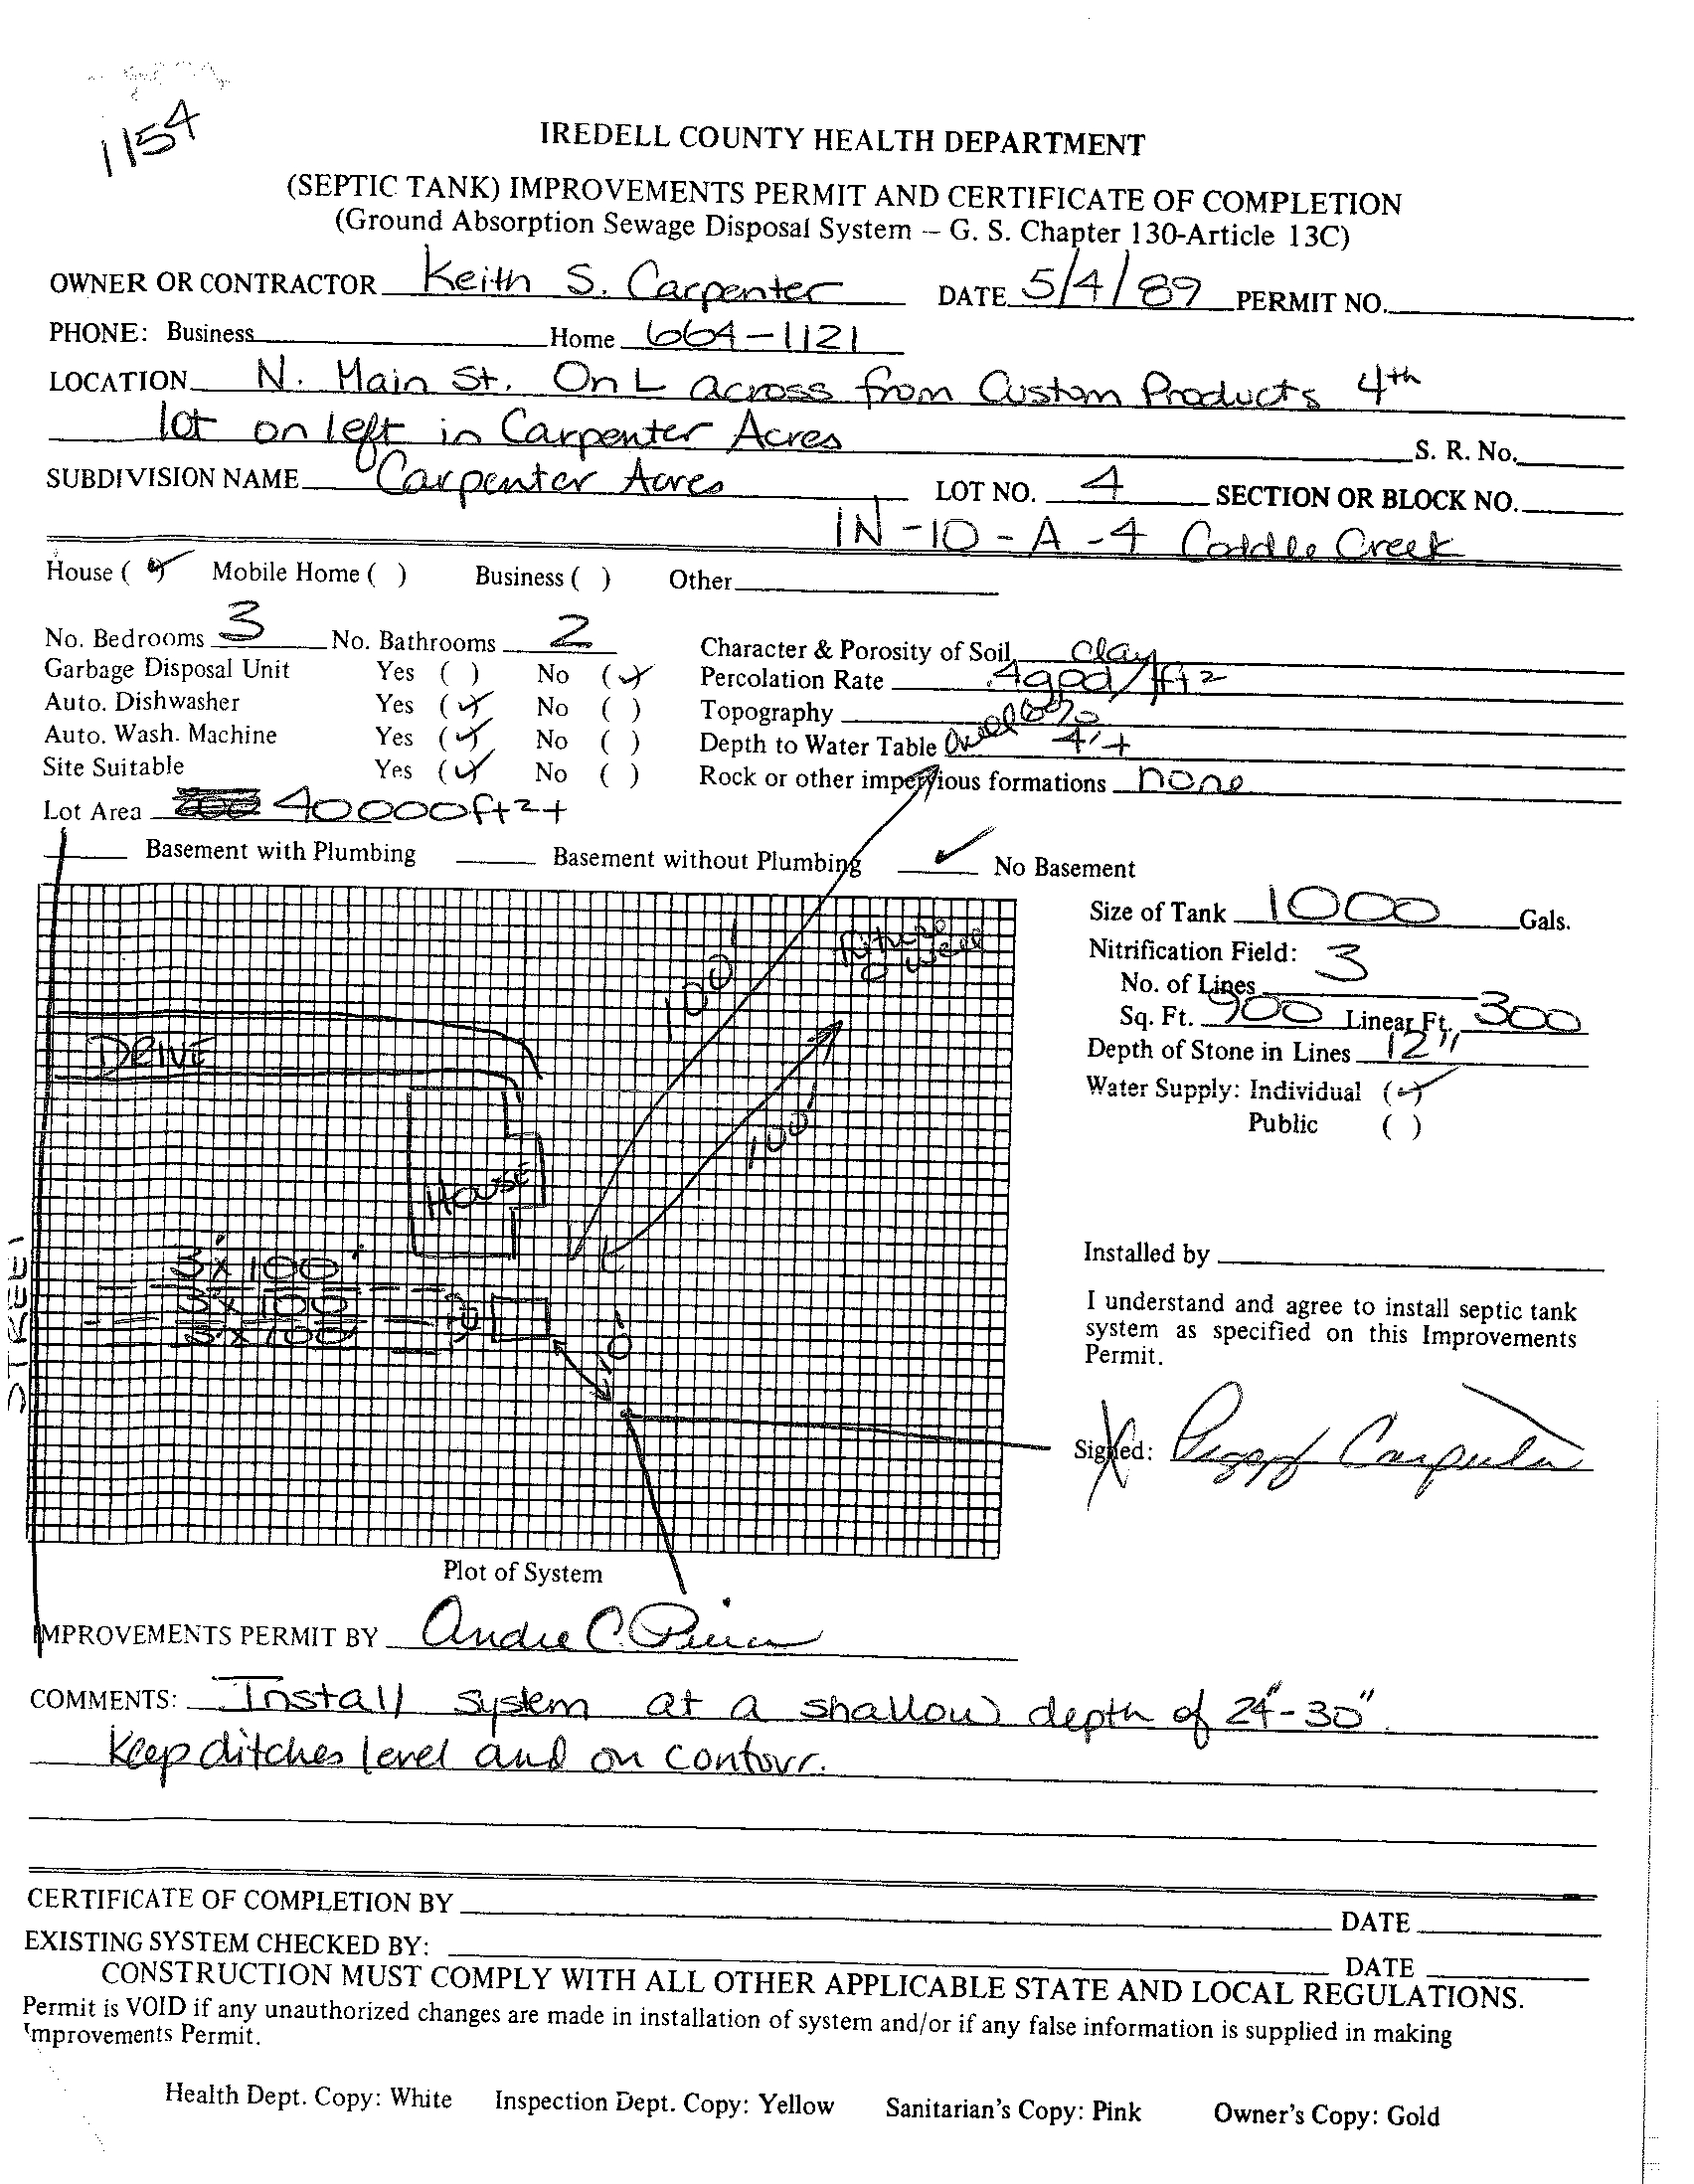 1154
IREDELL COUNTY HEALTH DEPARTMENT
(SEPTIC TANK) IMPROVEMENTS PERMIT AND CERTIFICATE OF COMPLETION
(Ground Absorption Sewage Disposal System – G. S. Chapter 130-Article 13C)
OWNER OR CONTRACTOR Keith S. Carpenter DATE 5/4/89 PERMIT NO.
PHONE: Business Home 664-1121
LOCATION N. Main St. On L across from Custom Products 4th
lot on left in Carpenter Acres S. R. No.
SUBDIVISION NAME Carpenter Acres LOT NO. 4 SECTION OR BLOCK NO.
1N-10-A-4 Coddle Creek
House (✓) Mobile Home ( ) Business ( ) Other
No. Bedrooms 3 No. Bathrooms 2 Character & Porosity of Soil clay
Garbage Disposal Unit Yes ( ) No (✓) Percolation Rate .4gpd/ft2
Auto. Dishwasher Yes (✓) No ( ) Topography 6%
Auto. Wash. Machine Yes (✓) No ( ) Depth to Water Table 4'+
Site Suitable Yes (✓) No ( ) Rock or other impervious formations none
Lot Area 40000ft2+
Basement with Plumbing Basement without Plumbing ✓ No Basement
Size of Tank 1000 Gals.
Nitrification Field:
No. of Lines 3
Sq. Ft. 900 Linear Ft. 300
Depth of Stone in Lines 12"
Water Supply: Individual (✓)
Public ( )
Future well
100'
DRIVE
100'
HOUSE
3'x100'
3'x100'
3'x100'
10'
STREET
Installed by
I understand and agree to install septic tank
system as specified on this Improvements
Permit.
X Signed: Peggy Carpenter
Plot of System
IMPROVEMENTS PERMIT BY Andre C.
COMMENTS: Install system at a shallow depth of 24"-30".
Keep ditches level and on contour.
CERTIFICATE OF COMPLETION BY DATE
EXISTING SYSTEM CHECKED BY: DATE
CONSTRUCTION MUST COMPLY WITH ALL OTHER APPLICABLE STATE AND LOCAL REGULATIONS.
Permit is VOID if any unauthorized changes are made in installation of system and/or if any false information is supplied in making
Improvements Permit.
Health Dept. Copy: White Inspection Dept. Copy: Yellow Sanitarian's Copy: Pink Owner's Copy: Gold